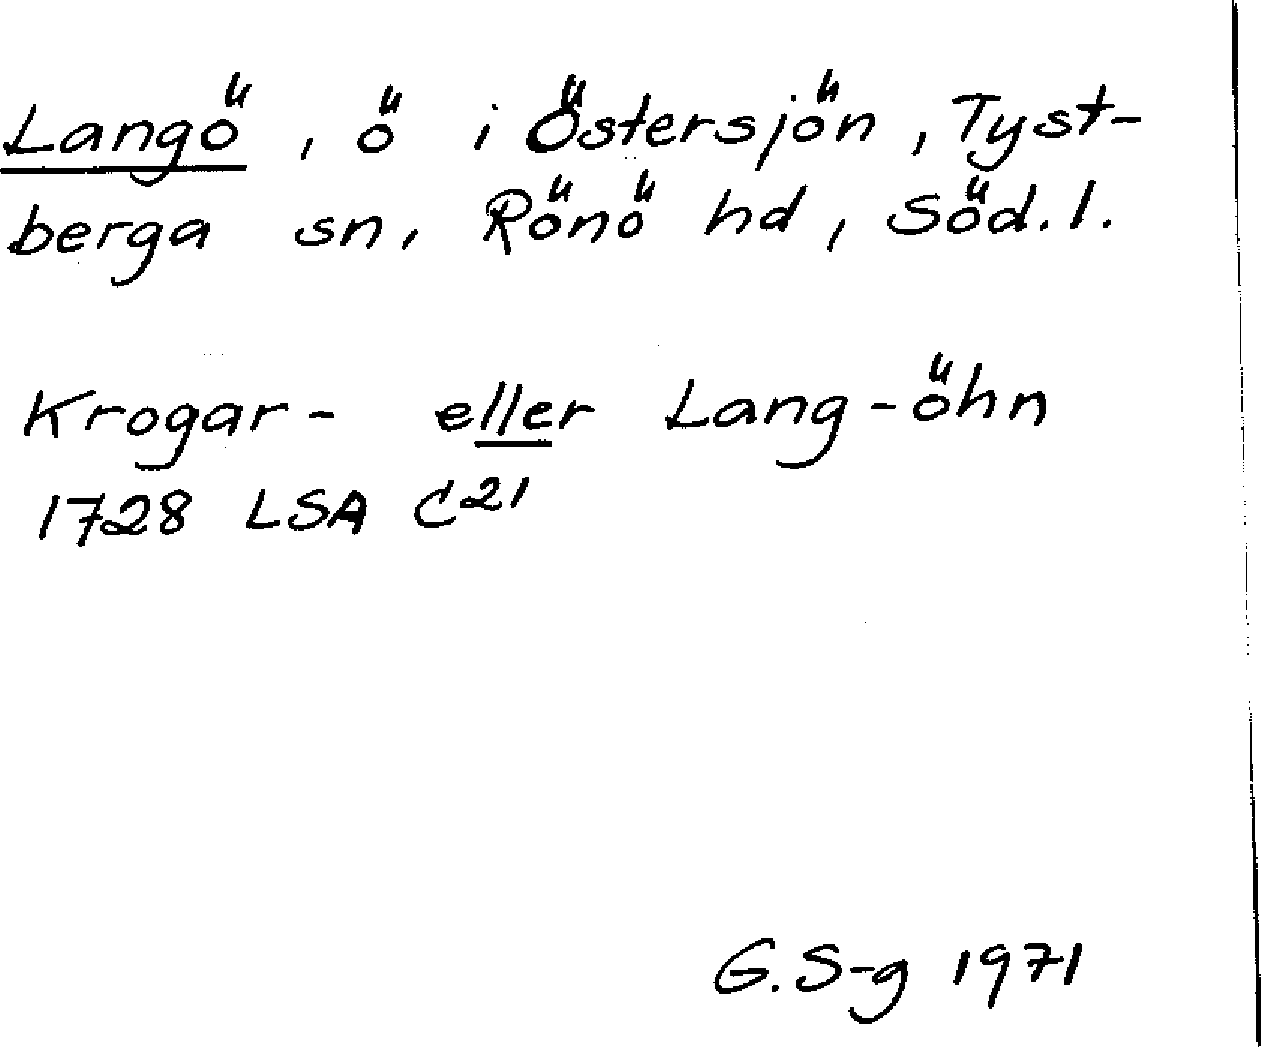 Langö, ö i Östersjön, Tyst-
berga sn, Rönö hd, Söd.l.
Krogar- eller Lang-öhn
1728 LSA C21
G.S-g 1971